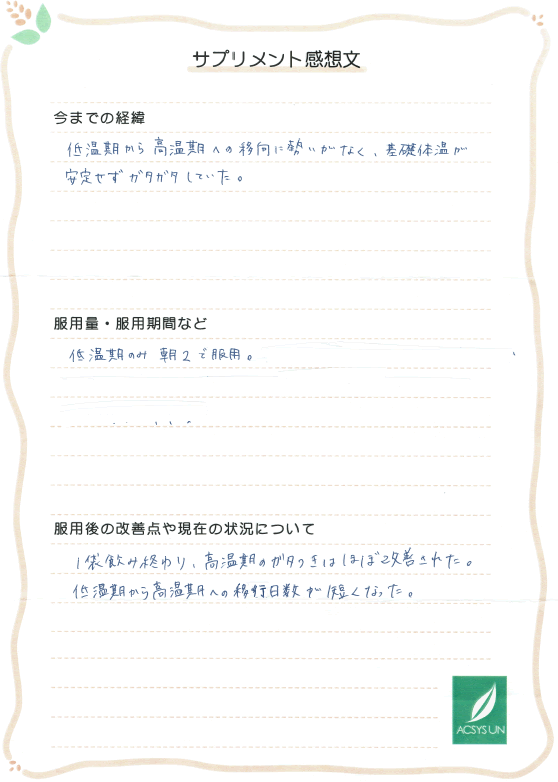 サプリメント感想文
今までの経緯
低温期から高温期への移向に勢いがなく、基礎体温が
安定せずガタガタしていた。
服用量・服用期間など
低温期のみ 朝2で服用。
服用後の改善点や現在の状況について
1袋飲み終わり、高温期のガタつきはほぼ改善された。
低温期から高温期への移行日数が短くなった。
ACSYSUN